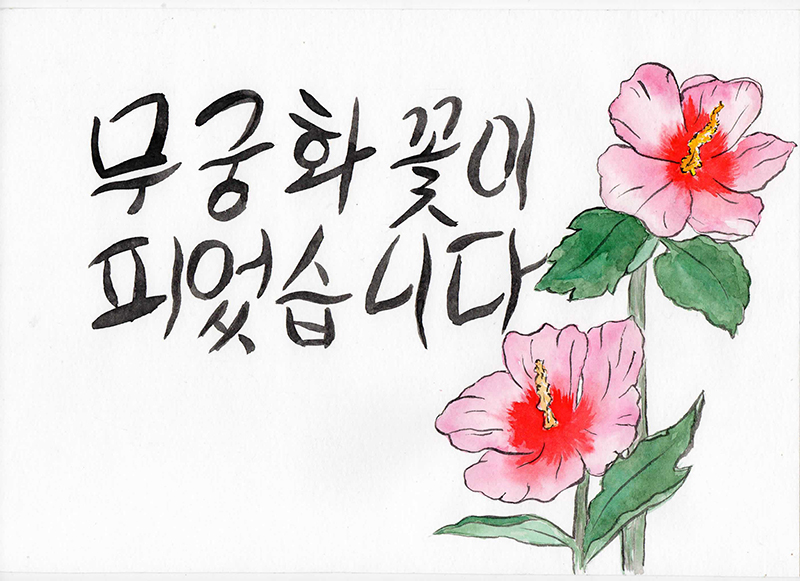 무궁화 꽃이
피었습니다